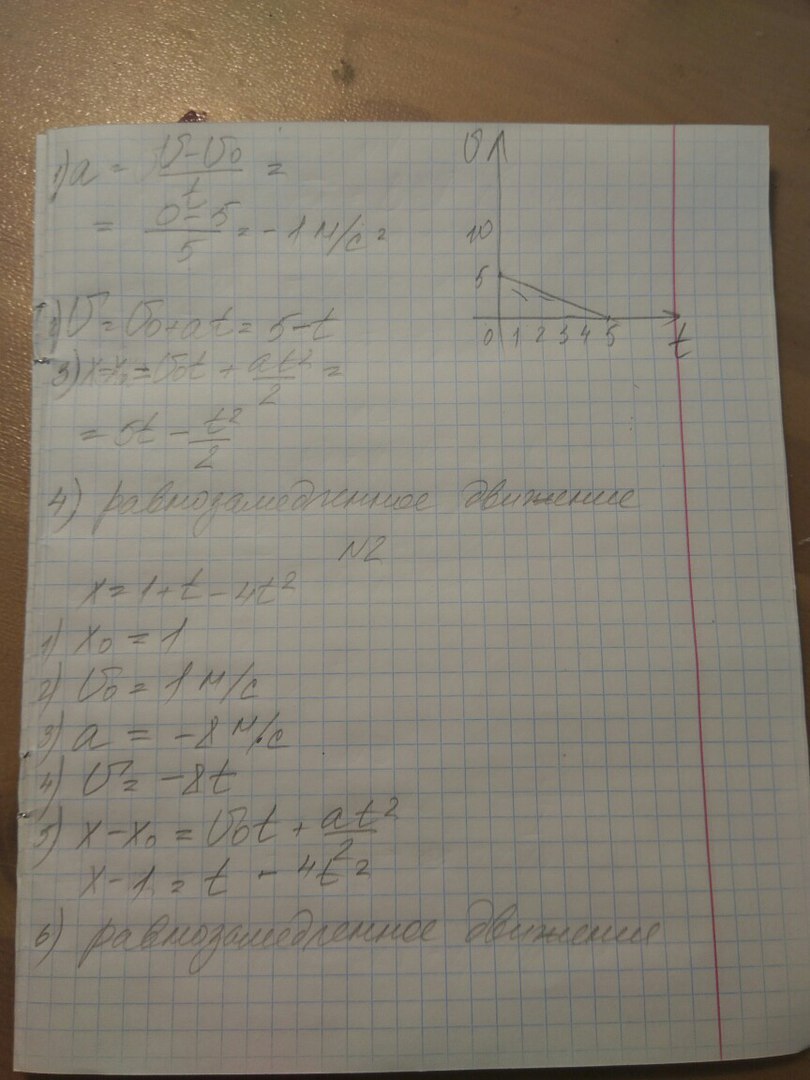 1) a = (v - v₀)/t =
= (0 - 5)/5 = -1 м/с²
v
10
5
0 1 2 3 4 5 t
2) v = v₀ + at = 5 - t
3) x - x₀ = v₀t + at²/2 =
= 5t - t²/2
4) равнозамедленное движение
N2
x = 1 + t - 4t²
1) x₀ = 1
2) v₀ = 1 м/с
3) a = -8 м/с
4) v = -8t
5) x - x₀ = v₀t + at²/2
x - 1 = t - 4t²
6) равнозамедленное движение